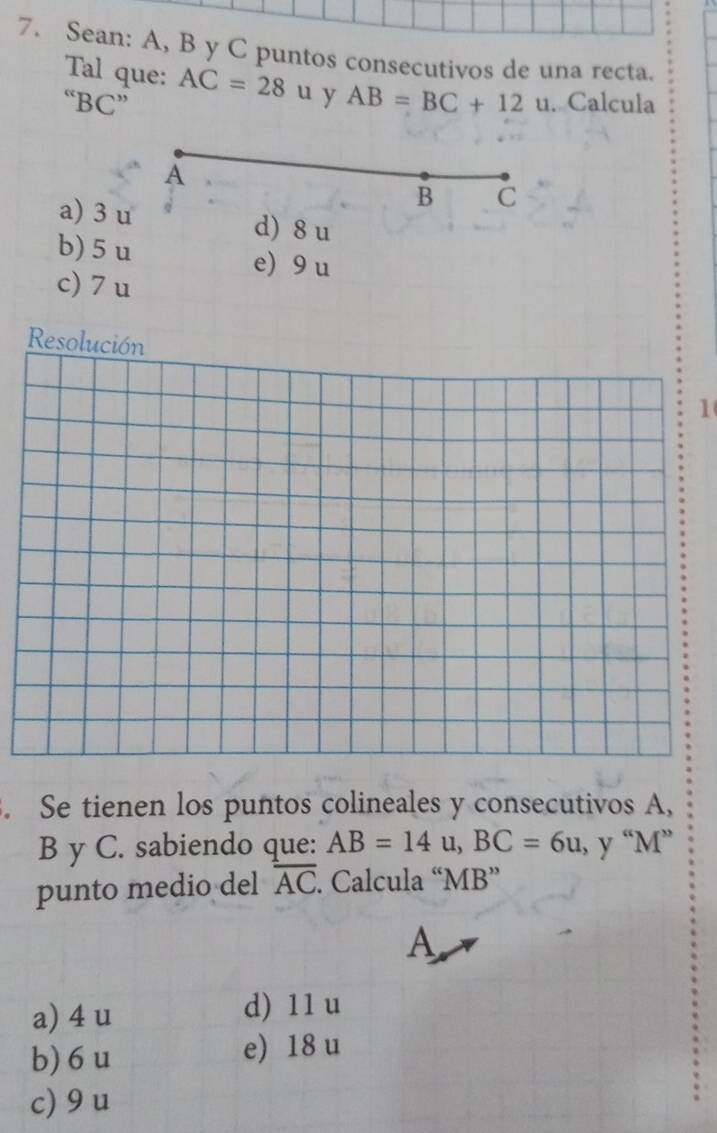 7. Sean: A, B y C puntos consecutivos de una recta.
Tal que: AC = 28 u y AB = BC + 12 u. Calcula
“BC”
A
B C
a) 3 u
d) 8 u
b) 5 u
e) 9 u
c) 7 u
Resolución
. Se tienen los puntos colineales y consecutivos A,
B y C. sabiendo que: AB = 14 u, BC = 6u, y “M”
punto medio del \overline{AC}. Calcula “MB”
A
a) 4 u
d) 11 u
b) 6 u
e) 18 u
c) 9 u